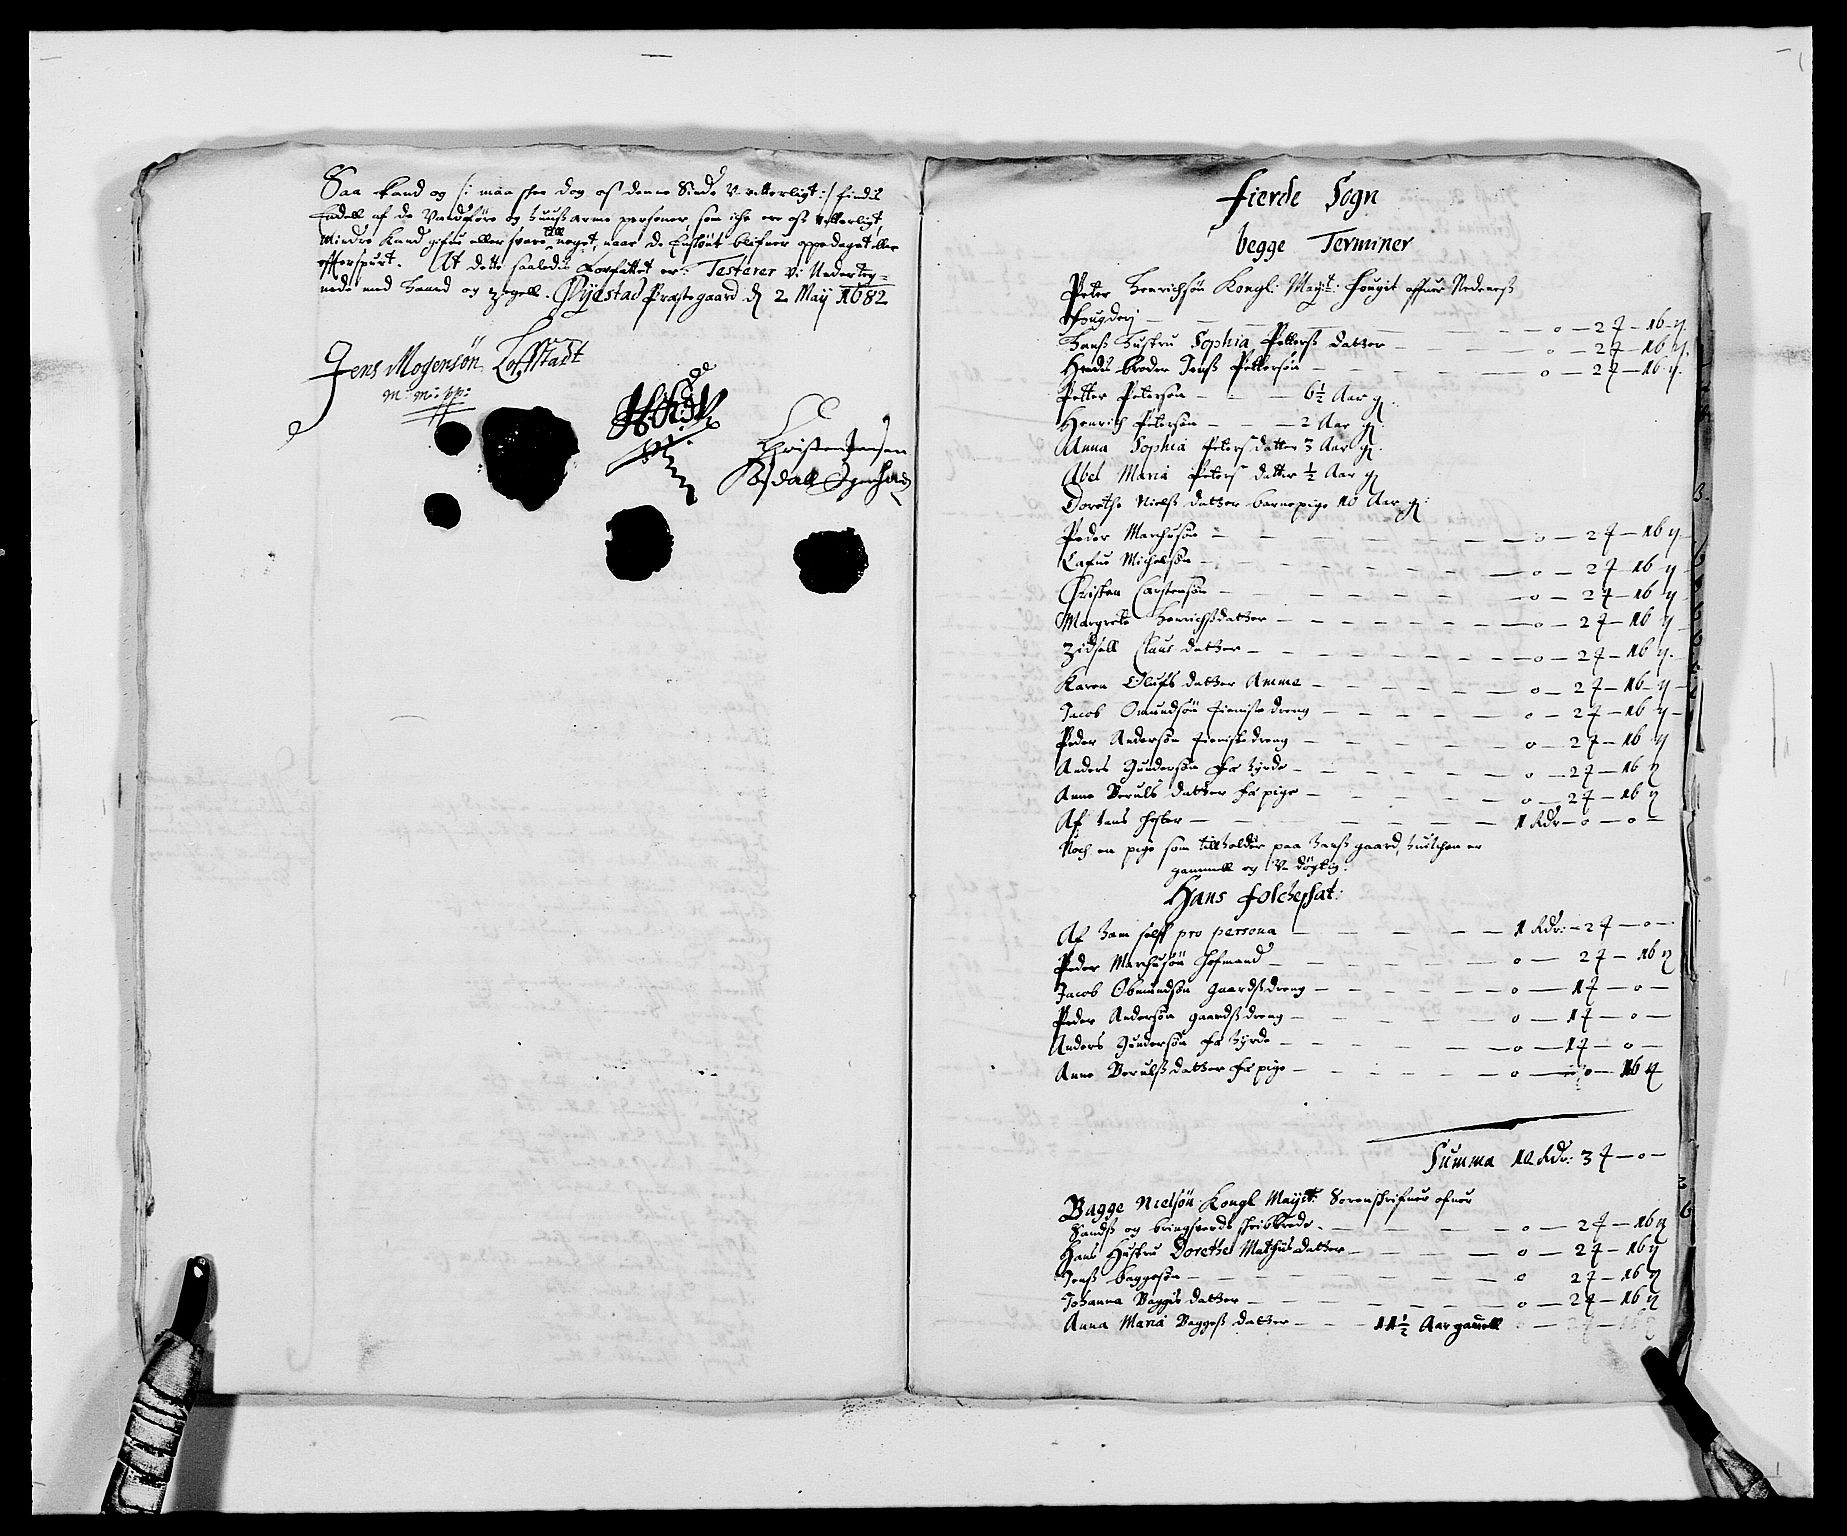 Saa kand og /: maa skee dog os denne Stede V-vitterligt :/ findis
Endell af de Vandføre og huuß arme personer som iche ere os vitterligt,
Mindre kand gifue eller svare till noget, naar de Enskiønt blifuer oppedaget eller
efterspurt. At dette saaledis Forfattet er: Testerer Vi Underteg-
nede med haand og Zegell. Øyestad Præstegaard d 2 May 1682
Jens Mogensøn Loffstadt
m: m: pp:
Christen Jensen
Fierde Sogn
begge Terminer
Peter Henrichsøn Kongl: Mayt: fougit offuer Nedeneß
fougderj — o — 2 # — 16 ꝶ
Hans hustru Sophia Petterß datter — o — 2 # — 16 ꝶ
Hendis broder Jenß Pettersøn — o — 2 # — 16 ꝶ
Petter Petersøn — 6½ Aar g.
Henrich Petersøn — 2 Aar g.
Anna Sophia Peters datter 3 Aar g.
Abel Maria Peters datter ½ Aar g
Dorethe Nielß datter barnepige 10 Aar g:
Peder Marchusøn — o — 2 # — 16 ꝶ
Lafue Michelsøn — o — 2 # — 16 ꝶ
Christen Carstensøn — o — 2 # — 16 ꝶ
Margrete Henrichßdatter — o — 2 # — 16 ꝶ
Zidsell Claus datter — o — 2 # — 16 ꝶ
Karen Olufs datter Amme — o — 2 # — 16 ꝶ
Jacob Omundsøn tieniste dreng — o — 2 # — 16 ꝶ
Peder Andersøn tieniste dreng — o — 2 # — 16 ꝶ
Anders Gundersøn fæ hyrde — o — 2 # — 16 ꝶ
Anne Beruls datter fæ pige — o — 2 # — 16 ꝶ
Af hans hester — 1 Rdr — o — o —
Noch en pige som tilholder paa hanß gaard, huilchen er
gammell og V-døgtig.
Hans folcheskat:
Af ham self pro persona — 1 Rdr: — 2 # — o —
Peder Marchusøn hofmand — o — 2 # — 16 ꝶ
Jacob Obmundsøn gaardß dreng — o — 1 # — o —
Peder Andersøn gaardß dreng — o — 1 # — o —
Anders Gundersøn fæ hyrde — o — 1 # — o —
Anne Berulß datter fæ pige — o — o — 16 ꝶ
Summa 12 Rdr: 3 # — o —
Bagge Nielsøn Kongl Mayst: Sorenschrifuer ofuer
Sandß og bringsverds schibbrede — o — 2 # — 16 ꝶ
Hans Hustru Dorethe Mathis datter — o — 2 # — 16 ꝶ
Jenß baggesøn — o 2 # — 16 ꝶ
Johanna Baggis datter — o — 2 # — 16 ꝶ
Anna Maria Baggeß datter — 11½ Aar gamell